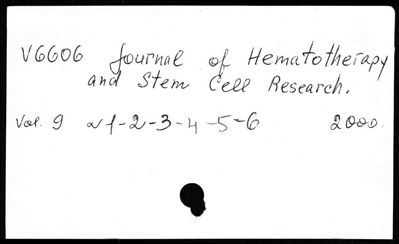 V6606 Journal of Hematotherapy
and Stem Cell Research.
Vol. 9 № 1-2-3-4-5-6 2000.